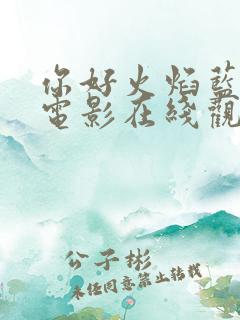 你好火焰藍
電影在綫觀
公子彬
未任同意禁止转载